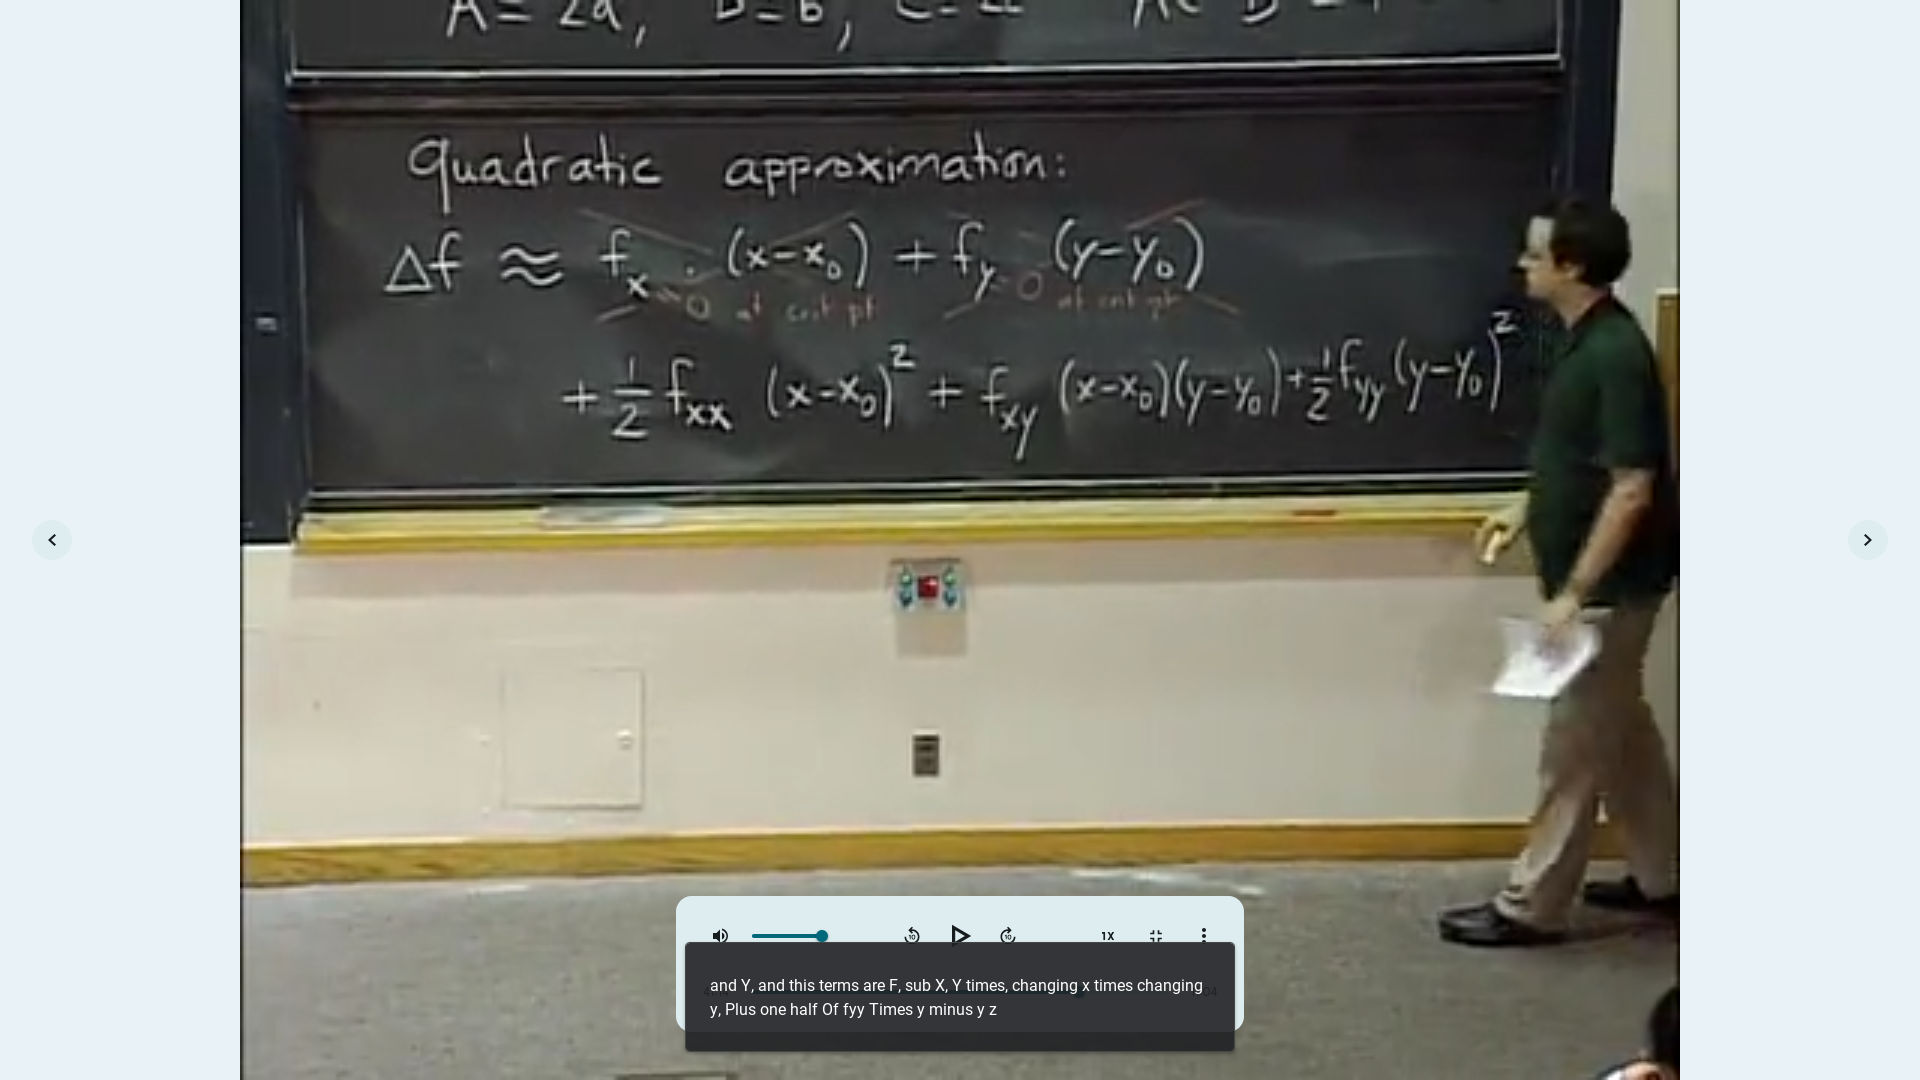 A = 2a, B = b,
Quadratic approximation:
Δf ≈ fx · (x-x0) + fy (y-y0)
=0 at crit pt =0 at crit pt
+ 1/2 fxx (x-x0)² + fxy (x-x0)(y-y0) + 1/2 fyy (y-y0)²
10 10 1X
and Y, and this terms are F, sub X, Y times, changing x times changing
y, Plus one half Of fyy Times y minus y z